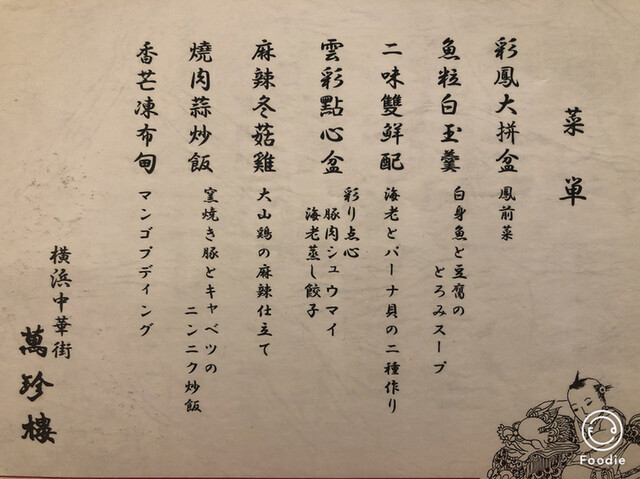 菜単
彩鳳大拼盆 鳳前菜
魚粒白玉羹 白身魚と豆腐の
とろみスープ
二味雙鮮配 海老とパーナ貝の二種作り
雲彩點心盆 彩り点心
豚肉シュウマイ
海老蒸し餃子
麻辣冬菇雞 大山鶏の麻辣仕立て
燒肉蒜炒飯 窯焼き豚とキャベツの
ニンニク炒飯
香芒凍布甸 マンゴプディング
横浜中華街
萬珍樓
Foodie